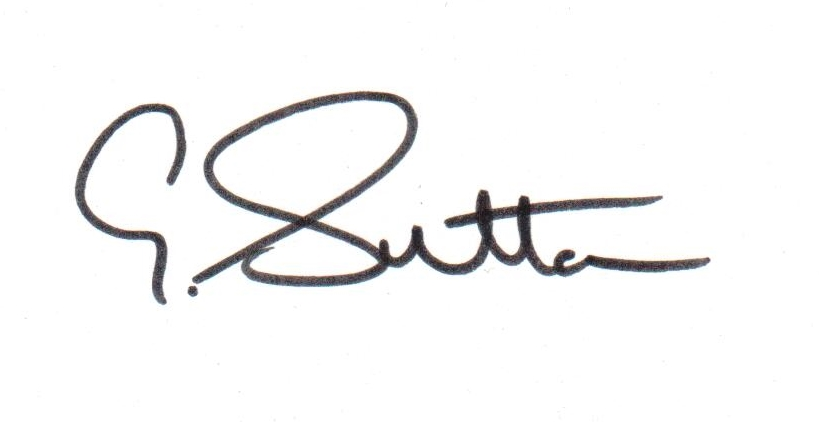 G. Sutton